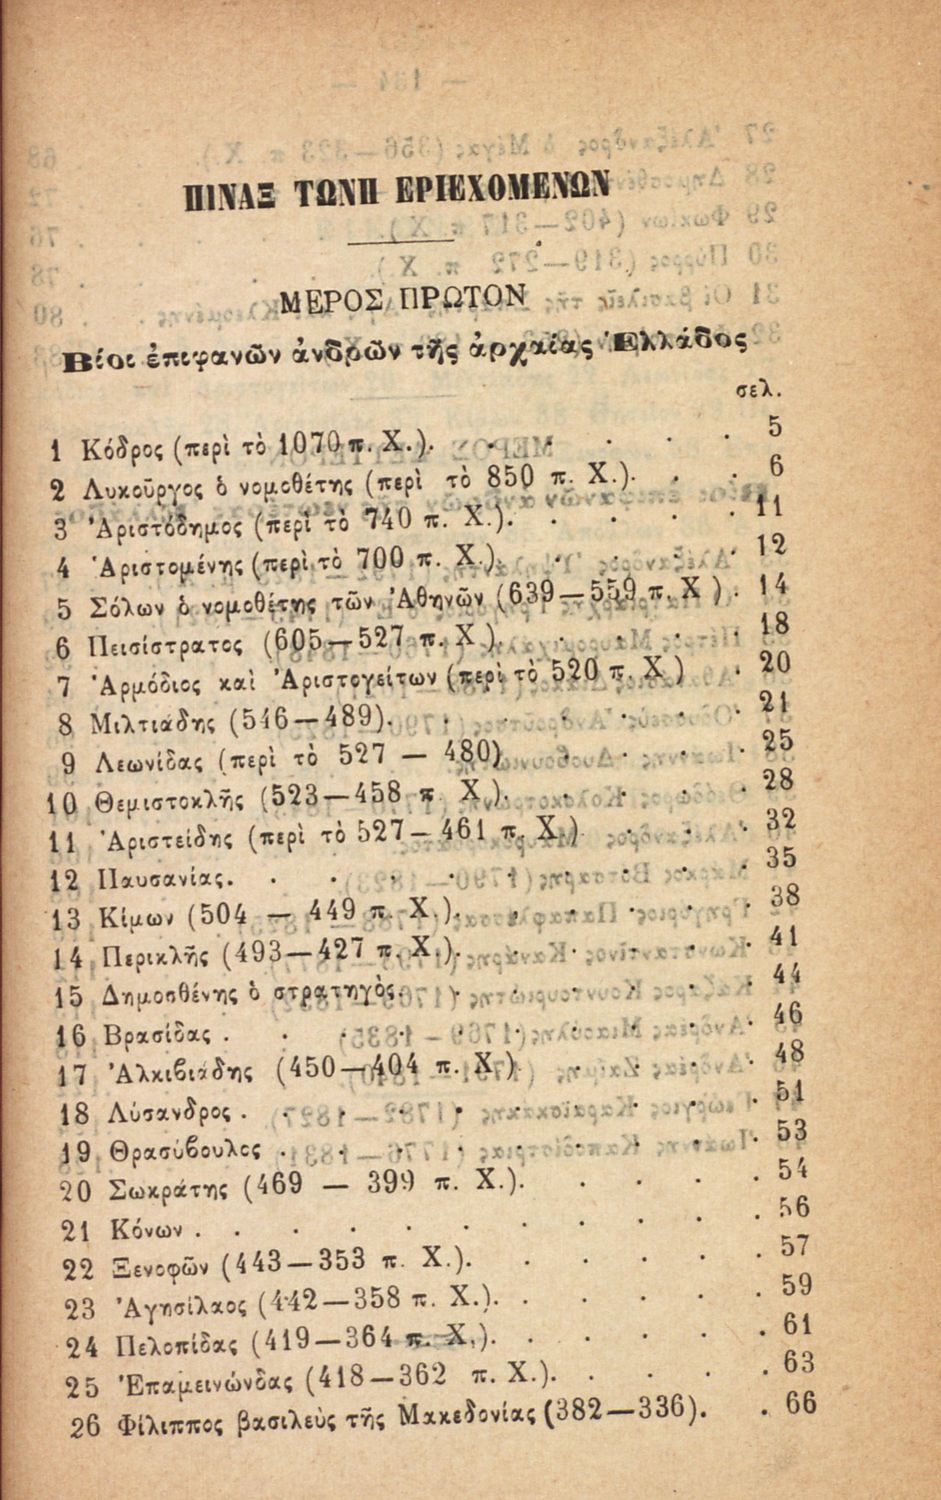 ΠΙΝΑΞ ΤΩΝΠ ΕΡΙΕΧΟΜΕΝΩΝ
ΜΕΡΟΣ ΠΡΩΤΟΝ
Βίοι ἐπιφανῶν ἀνδρῶν τῆς ἀρχαίας Ἑλλάδος
σελ.
1 Κόδρος (περὶ τὸ 1070 π. Χ.). 5
2 Λυκοῦργος ὁ νομοθέτης (περὶ τὸ 850 π. Χ.). 6
3 Ἀριστόδημος (περὶ τὸ 740 π. Χ.). 11
4 Ἀριστομένης (περὶ τὸ 700 π. Χ.). 12
5 Σόλων ὁ νομοθέτης τῶν Ἀθηνῶν (639—559 π. Χ ). 14
6 Πεισίστρατος (605—527 π. Χ ). 18
7 Ἁρμόδιος καὶ Ἀριστογείτων (περὶ τὸ 520 π. Χ ) 20
8 Μιλτιάδης (546—489). 21
9 Λεωνίδας (περὶ τὸ 527 — 480) 25
10 Θεμιστοκλῆς (523—458 π Χ ). 28
11 Ἀριστείδης (περὶ τὸ 527—461 π. Χ.) 32
12 Παυσανίας. 35
13 Κίμων (504 — 449 π. Χ.). 38
14 Περικλῆς (493—427 π. Χ.). 41
15 Δημοσθένης ὁ στρατηγὸς. 44
16 Βρασίδας . 46
17 Ἀλκιβιάδης (450—404 π. Χ ) 48
18 Λύσανδρος . 51
19 Θρασύβουλος . 53
20 Σωκράτης (469 — 399 π. Χ.). 54
21 Κόνων . 56
22 Ξενοφῶν (443—353 π. Χ.). 57
23 Ἀγησίλαος (442—358 π. Χ.). 59
24 Πελοπίδας (419—364 π. Χ.). 61
25 Ἐπαμεινώνδας (418—362 π. Χ.). 63
26 Φίλιππος βασιλεὺς τῆς Μακεδονίας (382—336). 66